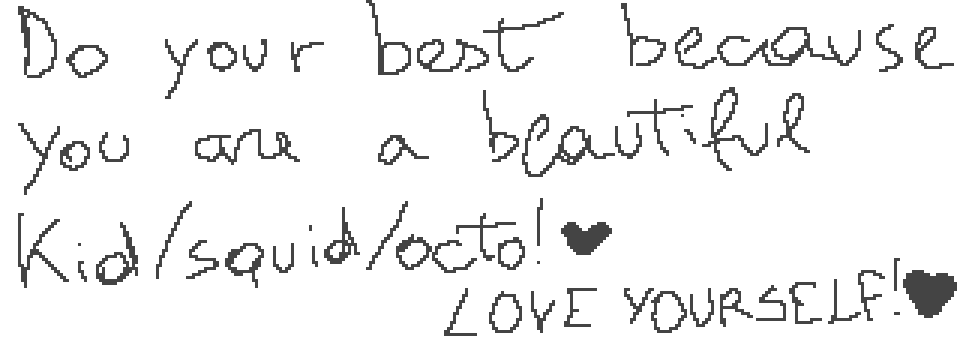 Do your best because
you are a beautiful
Kid/squid/octo! ♥
LOVE YOURSELF! ♥